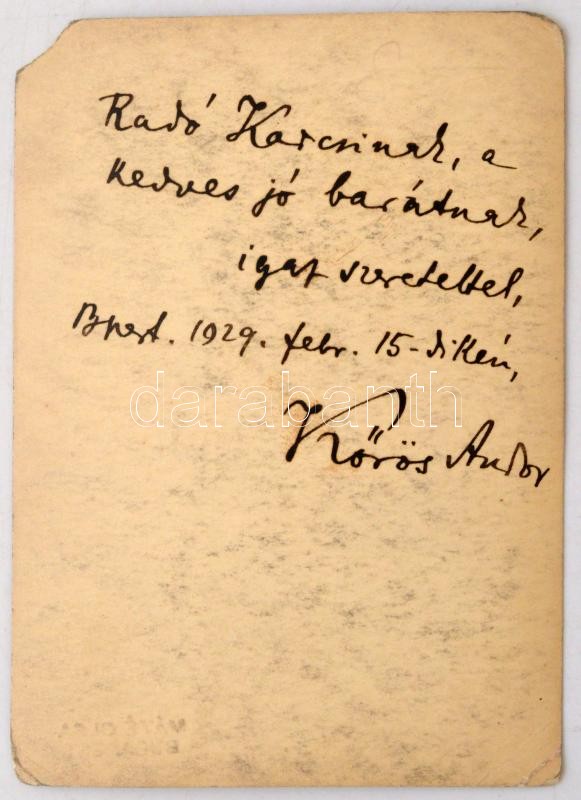 Radó Karcsinak, a
kedves jó barátnak,
igaz szeretettel,
Bpest. 1929. febr. 15-dikén,
darabanth
Kőrös Andor